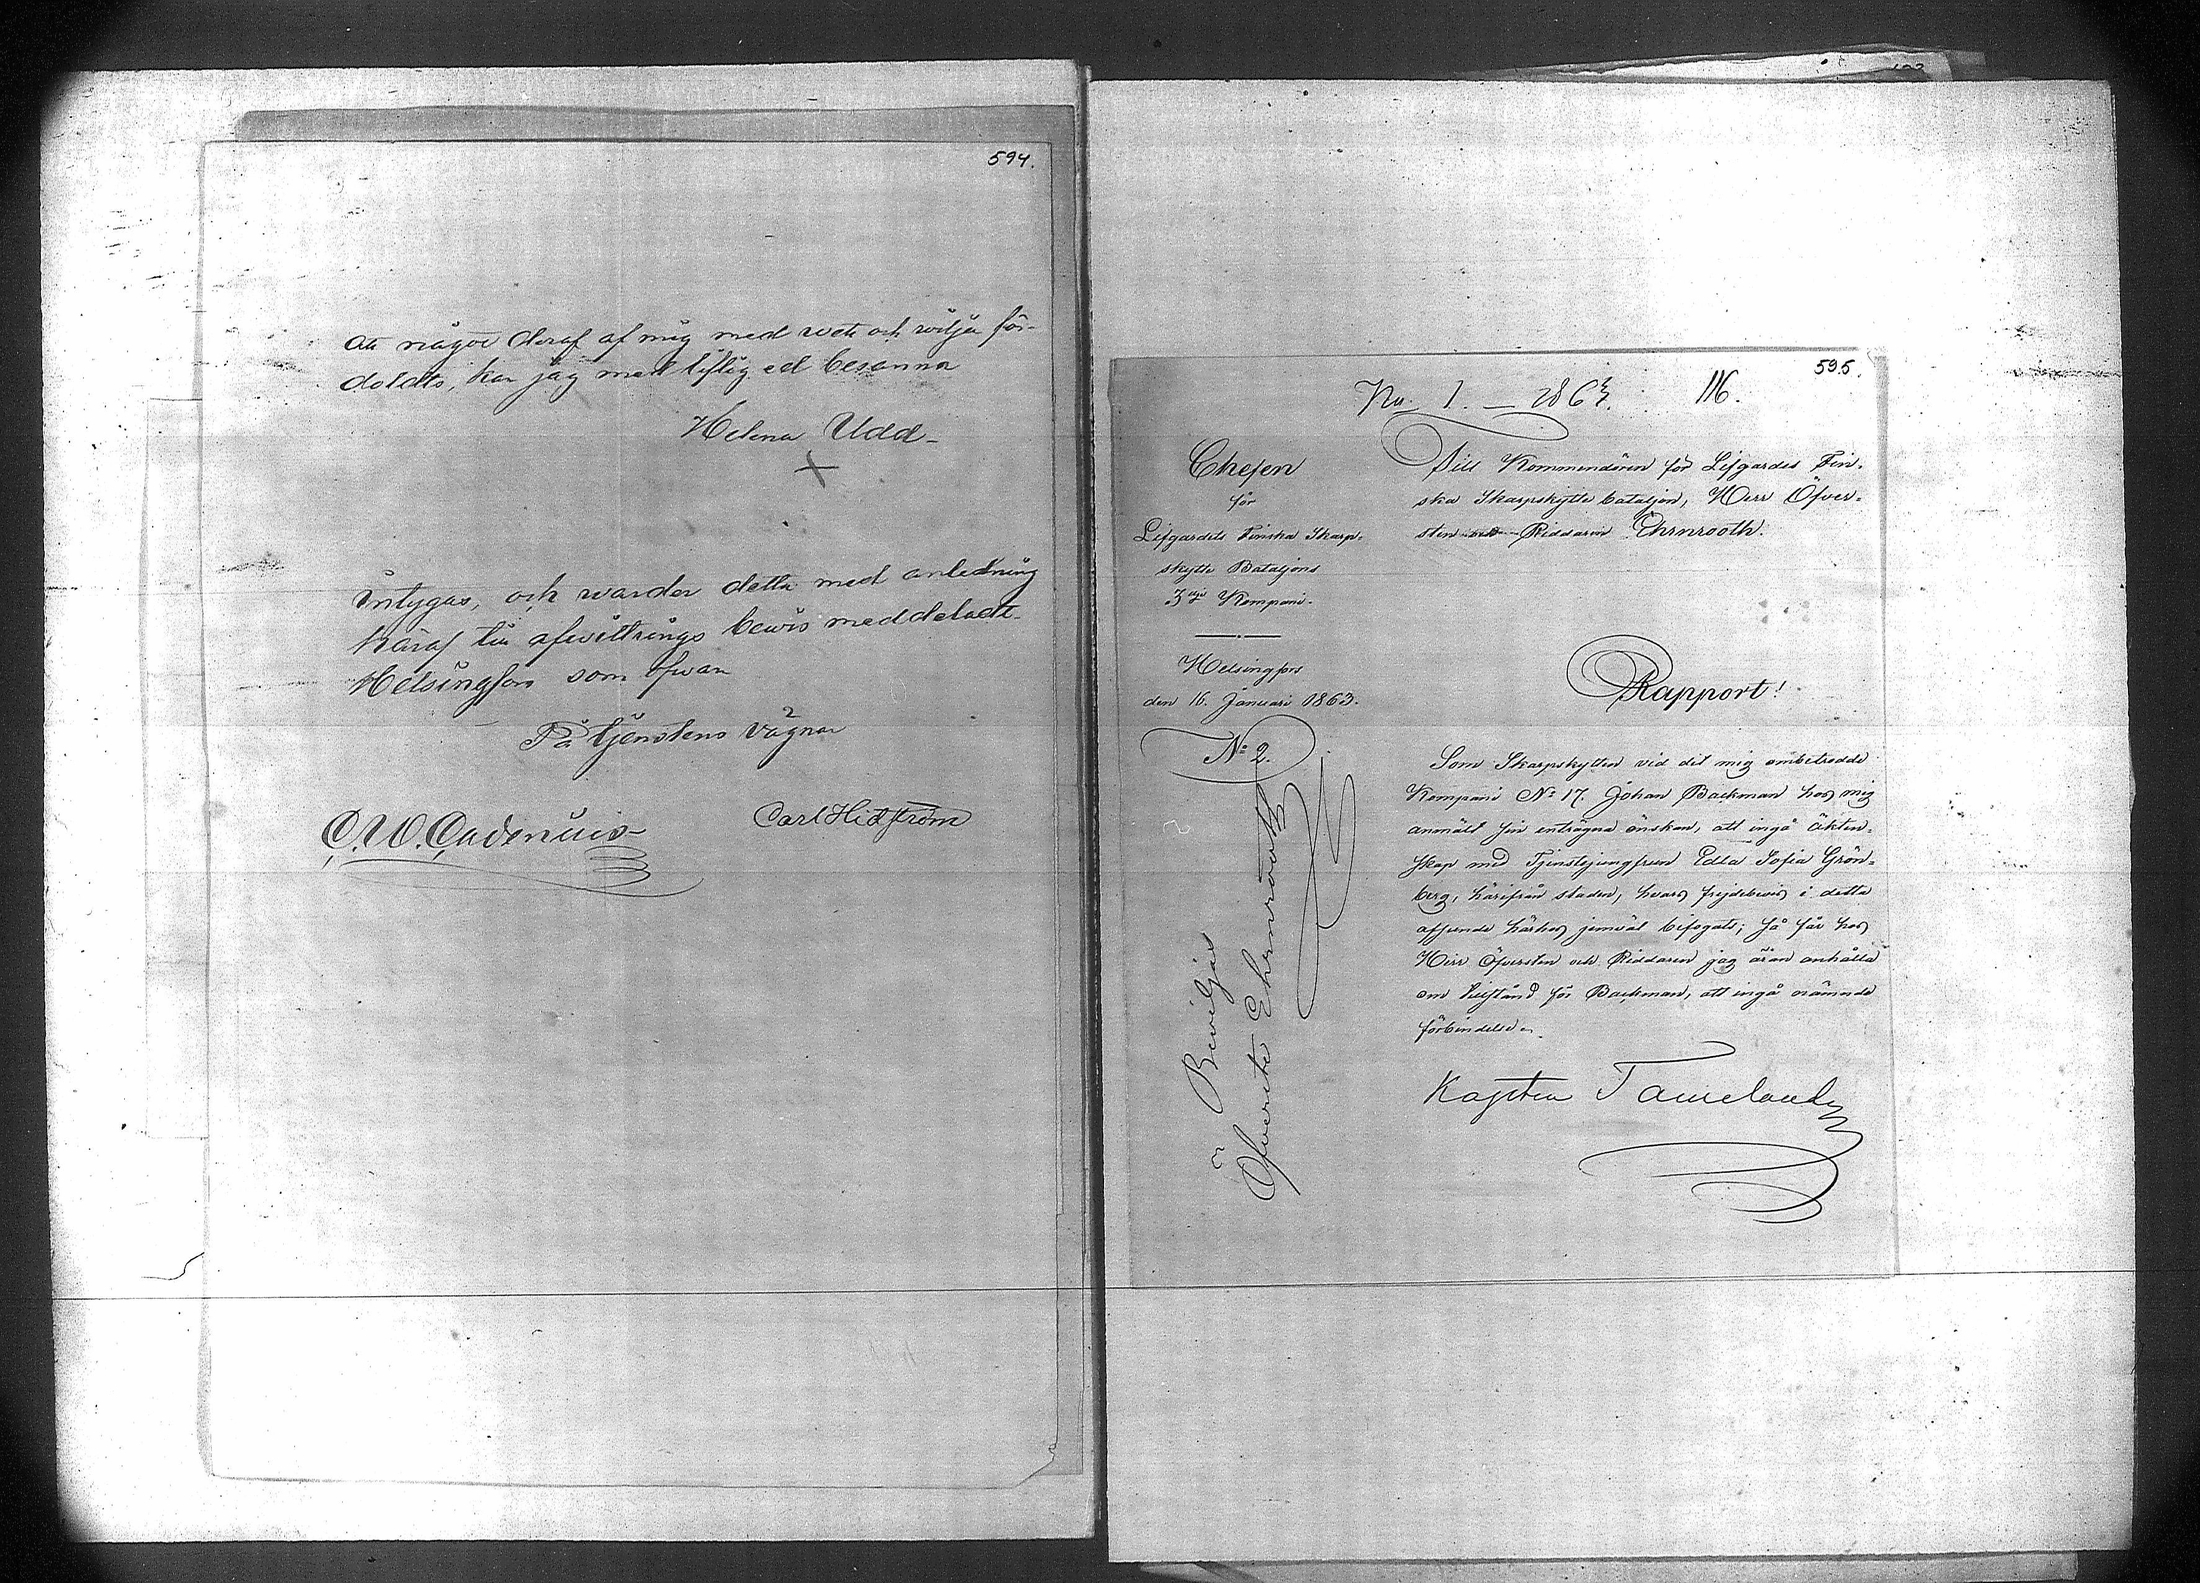 594.
att något deraf af mig med wett och wilja för-
doldts, kan jag med liflig ed besanna
Helena Udd-
Intygas, och warder detta med anledning
häraf till afwittrings bewis meddeladt.
Helsingfors som ofwan
På tjenstens vägnar
Carl Hidström
595.
No. 1. — 1863. 116.
Chefen
för
Lifgardets Finska Skarp-
skytte Bataljons
3dje Kompani.
Helsingfors
den 16. Januari 1863.
No 2.
Till Kommendören för Lifgardes Fin-
ska Skarpskytte bataljon, Herr Öfver-
sten och Riddaren Ehrnrooth.
Rapport!
Som Skarpskytten vid det mig ombetrodde
Kompani No 17. Johan Backman hos mig
anmält sin enträgna önskan, att ingå äkten-
skap med Tjenstejungfrun Edla Sofia Grön-
berg, härifrån staden, hvars frejdebevis i detta
afseende härhos jemväl bifogats; så får hos
Herr Öfversten och Riddaren jag äran anhålla
om tillstånd för Backman, att ingå nämnde
förbindelse.
Kapten
Beviljas
Öfverste Ehrnrooth